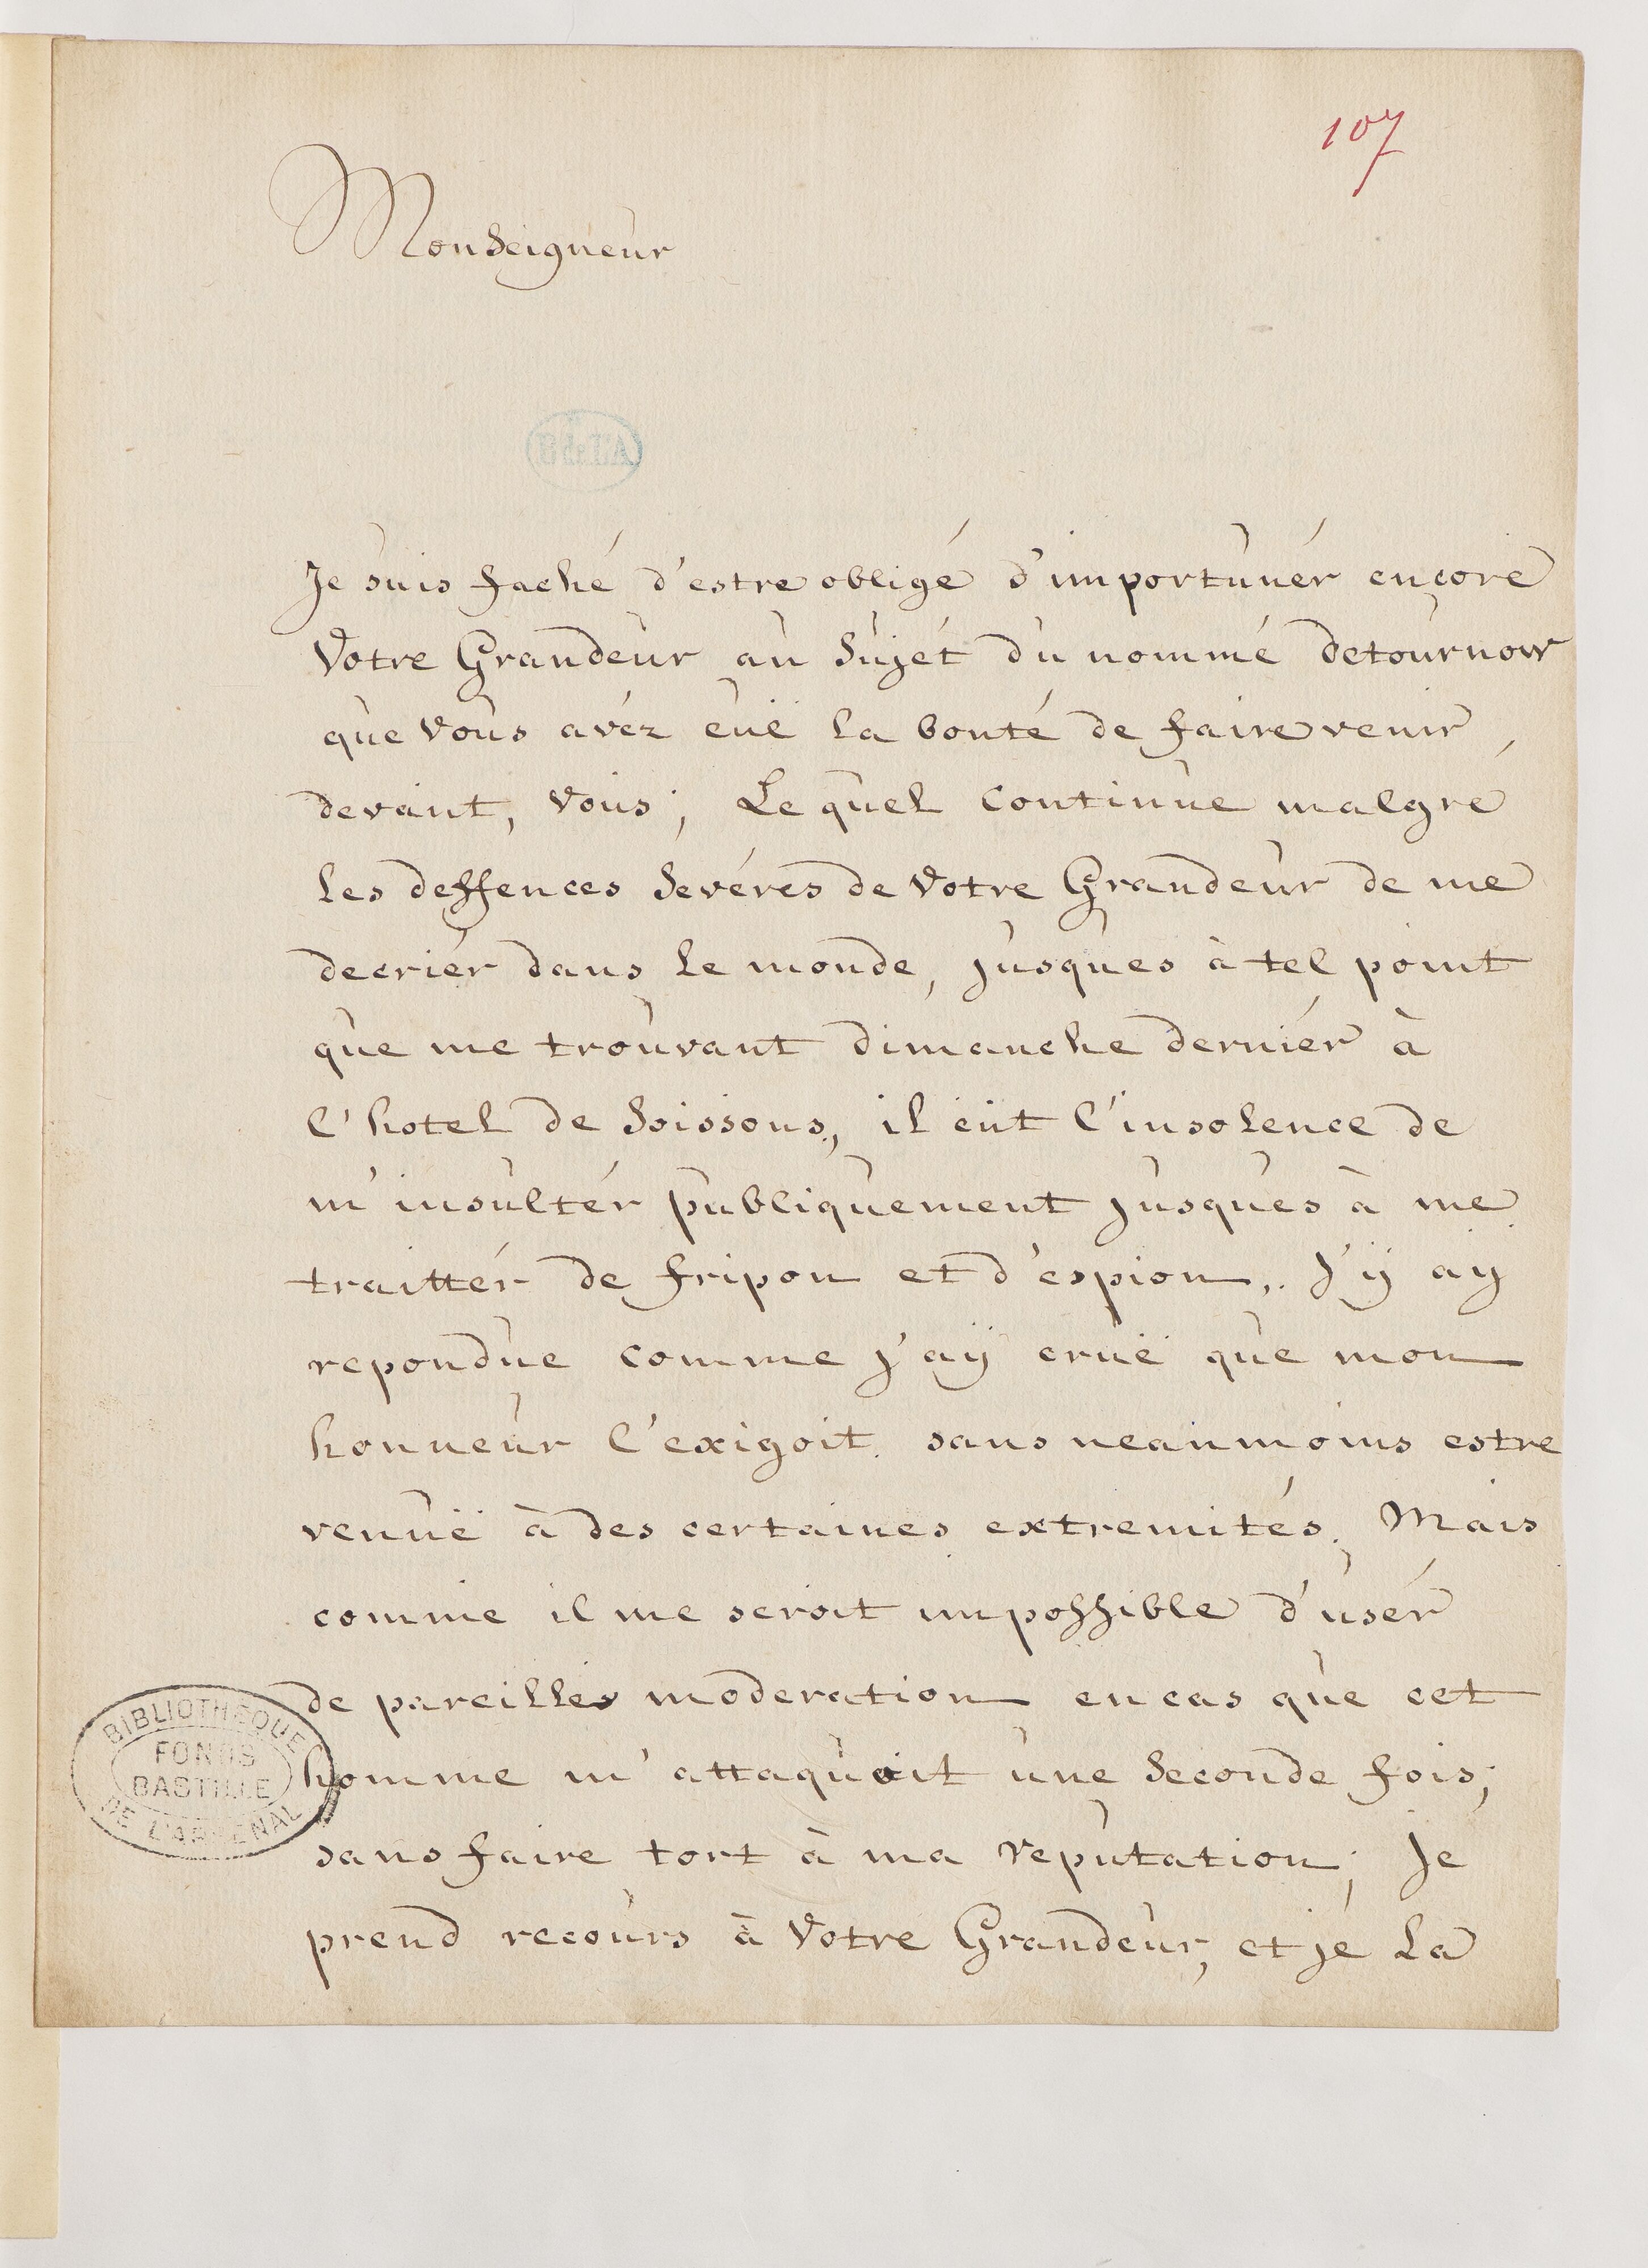 107
Monseigneur
B de L'A
Je suis faché d'estre obligé d'importunér encore
Votre Grandeur au Sujét du nommé Detournow
que Vous avéz eüe la bonté de faire venir,
devant, Vous; Le quel continue malgré
les deffences Sevéres de Votre Grandeur de me
decriér dans le monde, jusques à tel point
que me trouvant dimanche derniér à
l'hotel de Soissons, il eut l'insolence de
m'insultér publiquement jusques à me
traittér de fripon et d'espion,. J'ÿ aÿ
repondue comme j'aÿ crüe que mon
honneur l'exigoit. sans neanmoins estre
venuë à des certaines extremités. Mais
comme il me seroit impossible d'usér
de pareilles moderation en cas que cet
homme m'attaquoit une Seconde fois;
sans faire tort à ma reputation; Je
prend recours à Votre Grandeur, et je La
BIBLIOTHEQUE
FONDS
BASTILLE
DE L'ARSENAL